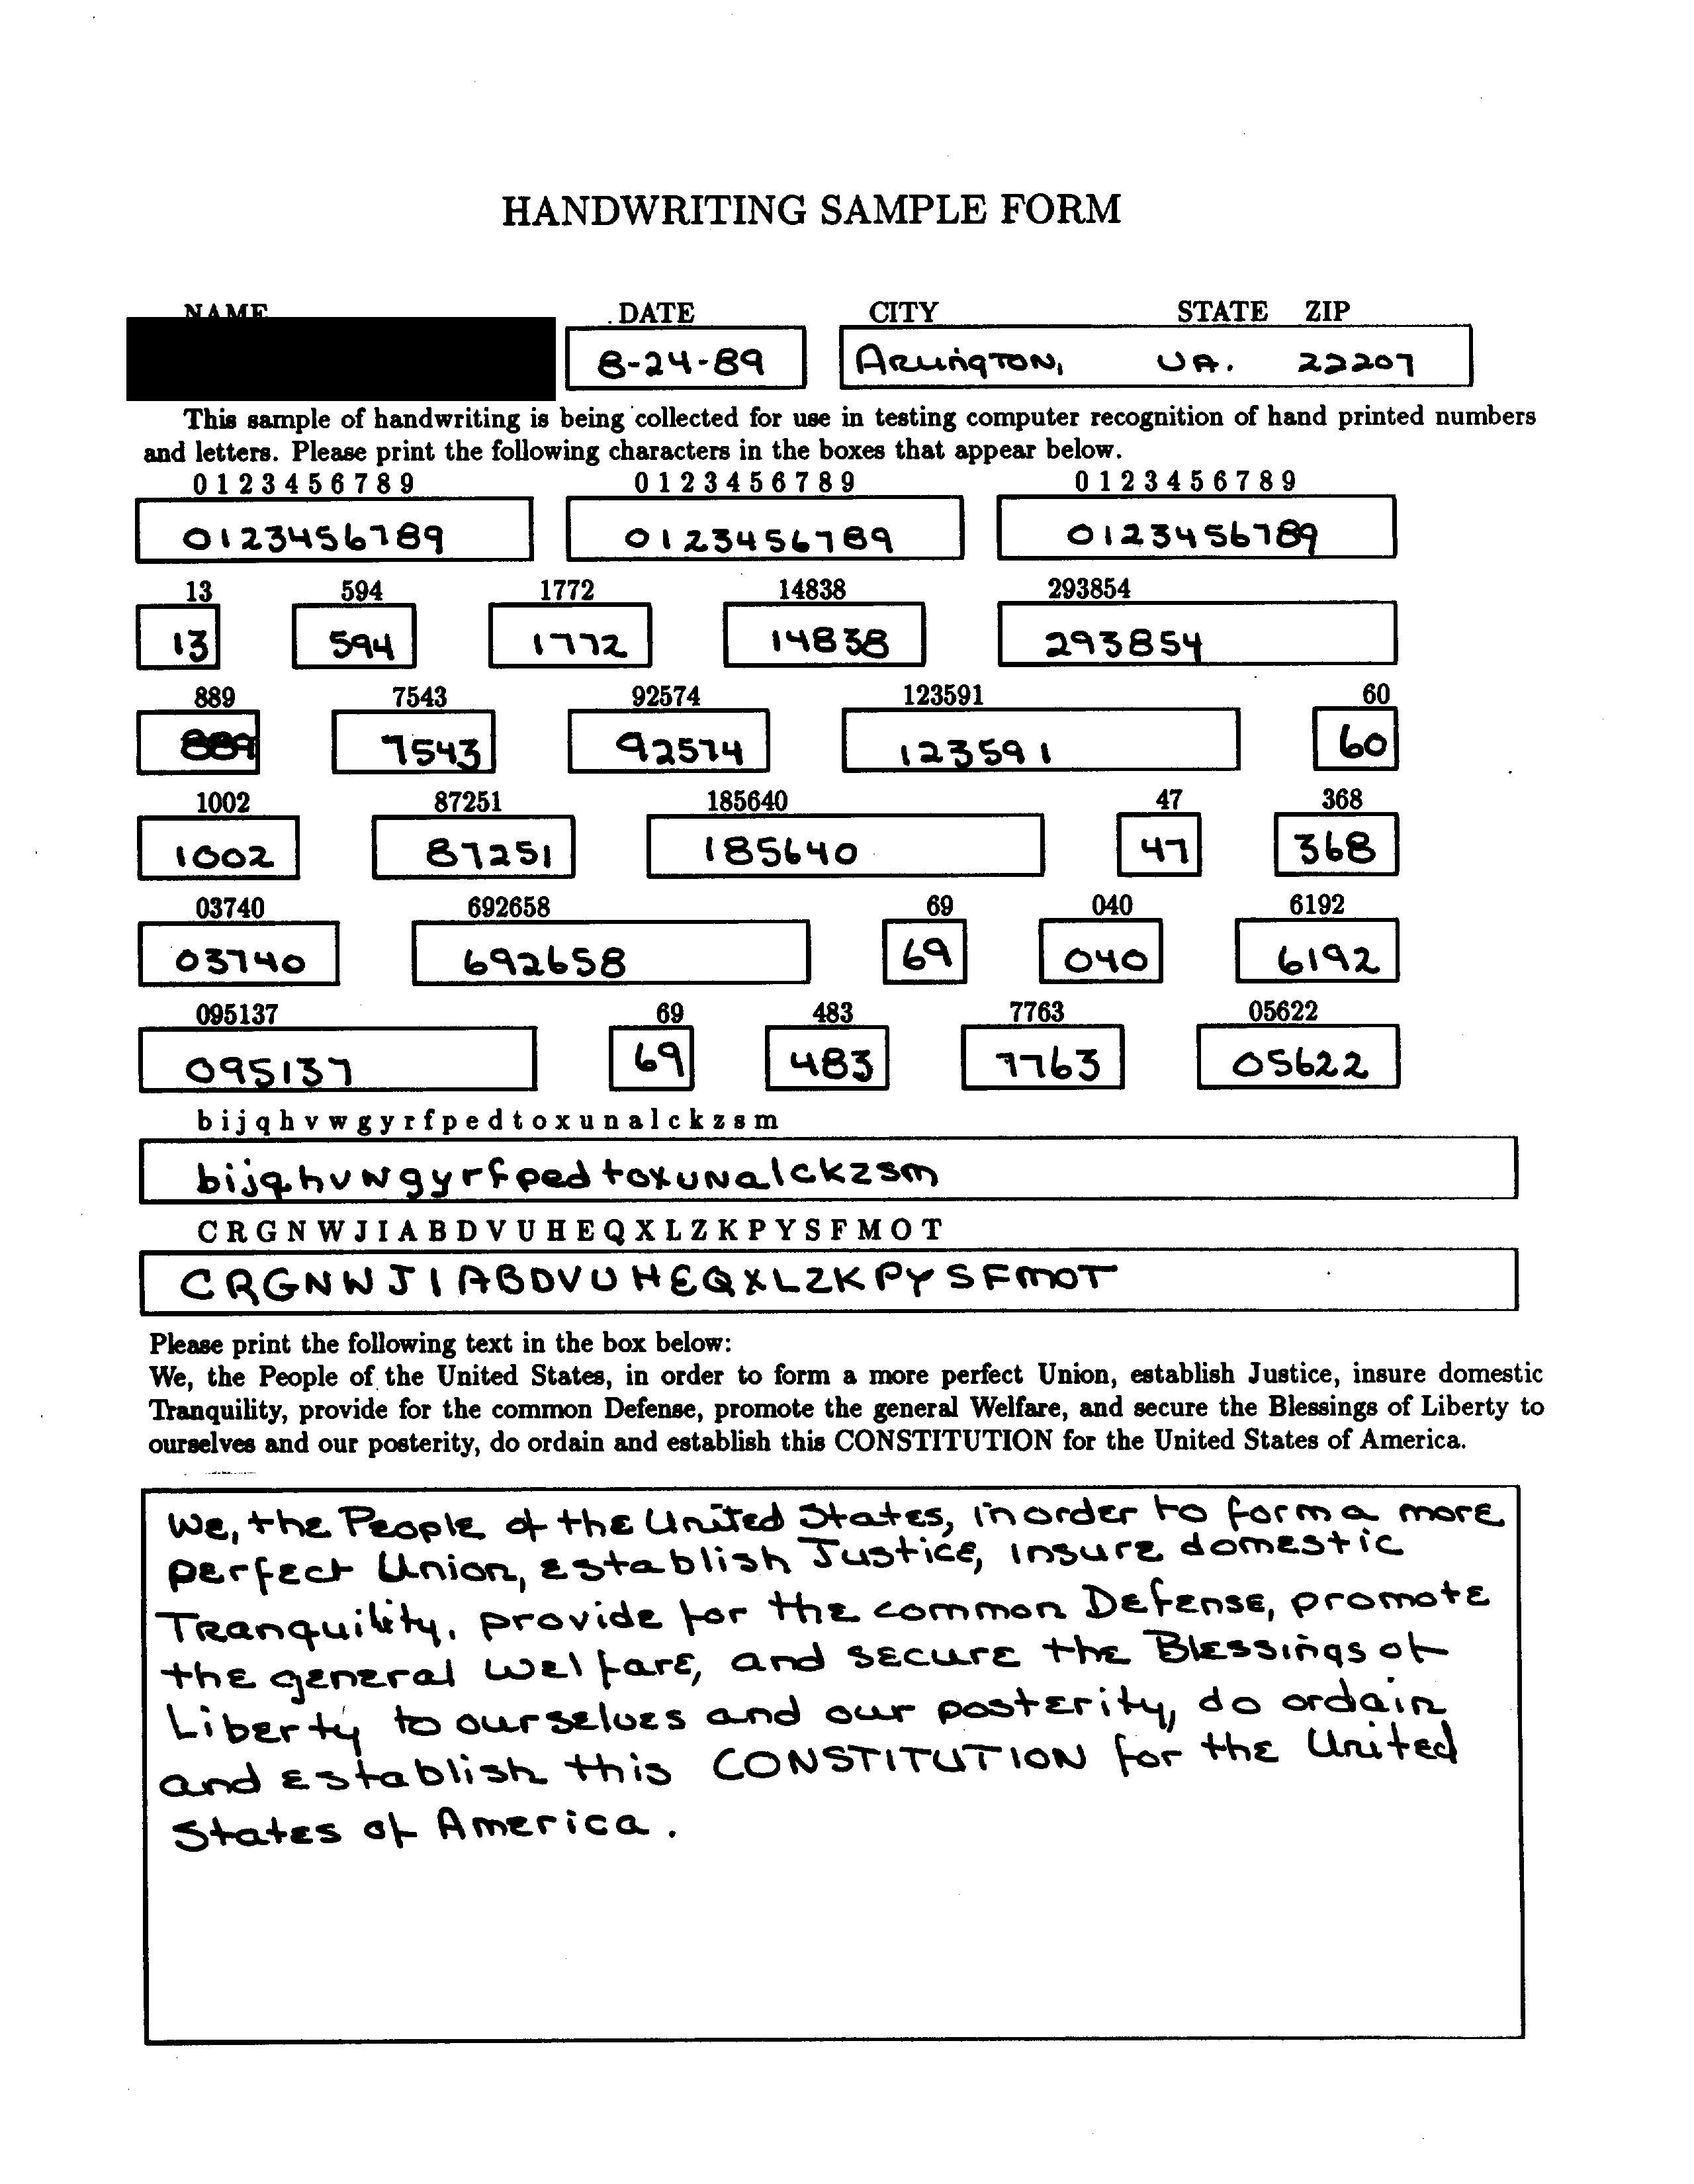 HANDWRITING SAMPLE FORM
NAME DATE CITY STATE ZIP
8-24-89 Arlington, VA. 22207
This sample of handwriting is being collected for use in testing computer recognition of hand printed numbers
and letters. Please print the following characters in the boxes that appear below.
0 1 2 3 4 5 6 7 8 9 0 1 2 3 4 5 6 7 8 9 0 1 2 3 4 5 6 7 8 9
0123456789 0123456789 0123456789
13 594 1772 14838 293854
13 594 1772 14838 293854
889 7543 92574 123591 60
889 7543 92574 123591 60
1002 87251 185640 47 368
1002 87251 185640 47 368
03740 692658 69 040 6192
03740 692658 69 040 6192
095137 69 483 7763 05622
095137 69 483 7763 05622
b i j q h v w g y r f p e d t o x u n a l c k z s m
bijqhvwgyrfpedtoxunalckzsm
C R G N W J I A B D V U H E Q X L Z K P Y S F M O T
CRGNWJIABDVUHEQXLZKPYSFMOT
Please print the following text in the box below:
We, the People of the United States, in order to form a more perfect Union, establish Justice, insure domestic
Tranquility, provide for the common Defense, promote the general Welfare, and secure the Blessings of Liberty to
ourselves and our posterity, do ordain and establish this CONSTITUTION for the United States of America.
We, the People of the United States, in order to form a more
perfect Union, establish Justice, insure domestic
Tranquility, provide for the common Defense, promote
the general Welfare, and secure the Blessings of
Liberty to ourselves and our posterity, do ordain
and establish this CONSTITUTION for the United
States of America.